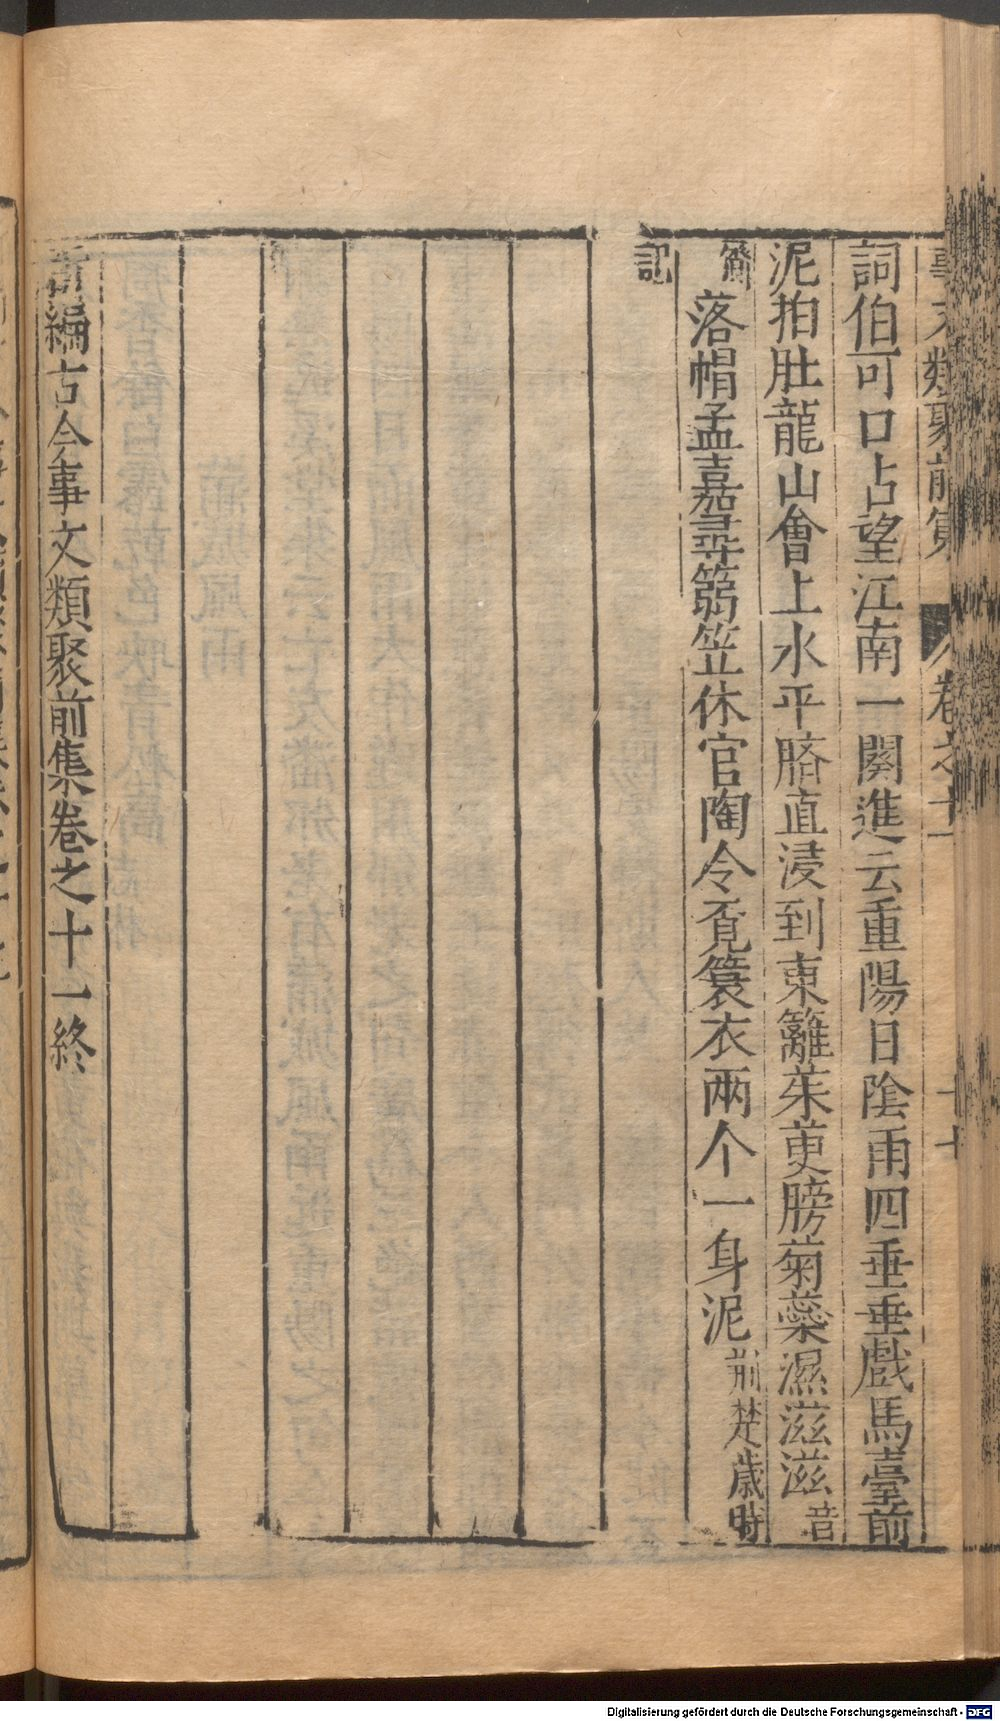 事文類聚前集 卷之十一 十七
詞伯可口占望江南一闋進云重陽日陰雨四垂垂戲馬臺前
泥拍肚龍山會上水平臍直浸到東籬茱萸膀菊蘂濕滋滋音
簪落帽孟嘉尋篛笠休官陶令覔簑衣兩个一身泥荊楚歲時
記
新編古今事文類聚前集卷之十一終
Digitalisierung gefördert durch die Deutsche Forschungsgemeinschaft - DFG